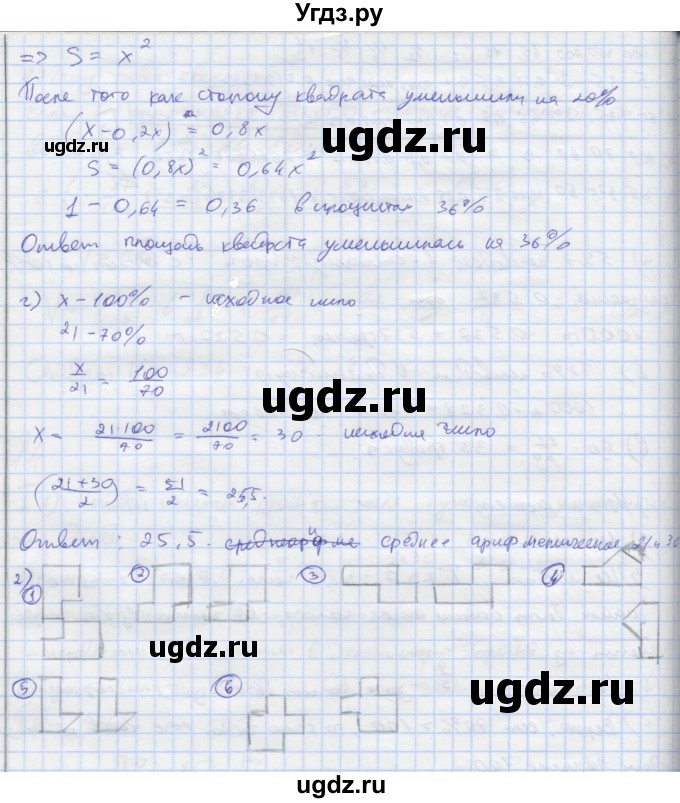 Угдз.ру
=> S = x²
После того как сторону квадрата уменьшили на 20%
(x - 0,2x) = 0,8x
ugdz.ru ugdz.ru
S = (0,8x)² = 0,64x²
ugdz.ru
1 - 0,64 = 0,36 в процентах 36%
Ответ площадь квадрата уменьшилась на 36%
г) x - 100% - исходное число
21 - 70%
x/21 = 100/70
ugdz.ru
x = 21·100/70 = 2100/70 = 30 - исходное число
ugdz.ru
(21+30/2) = 51/2 = 25,5.
Ответ: 25,5. среднее арифметическое 21 и 30
2) 1 2 3 4
ugdz.ru
5 6
ugdz.ru
ugdz.ru
ugdz.ru